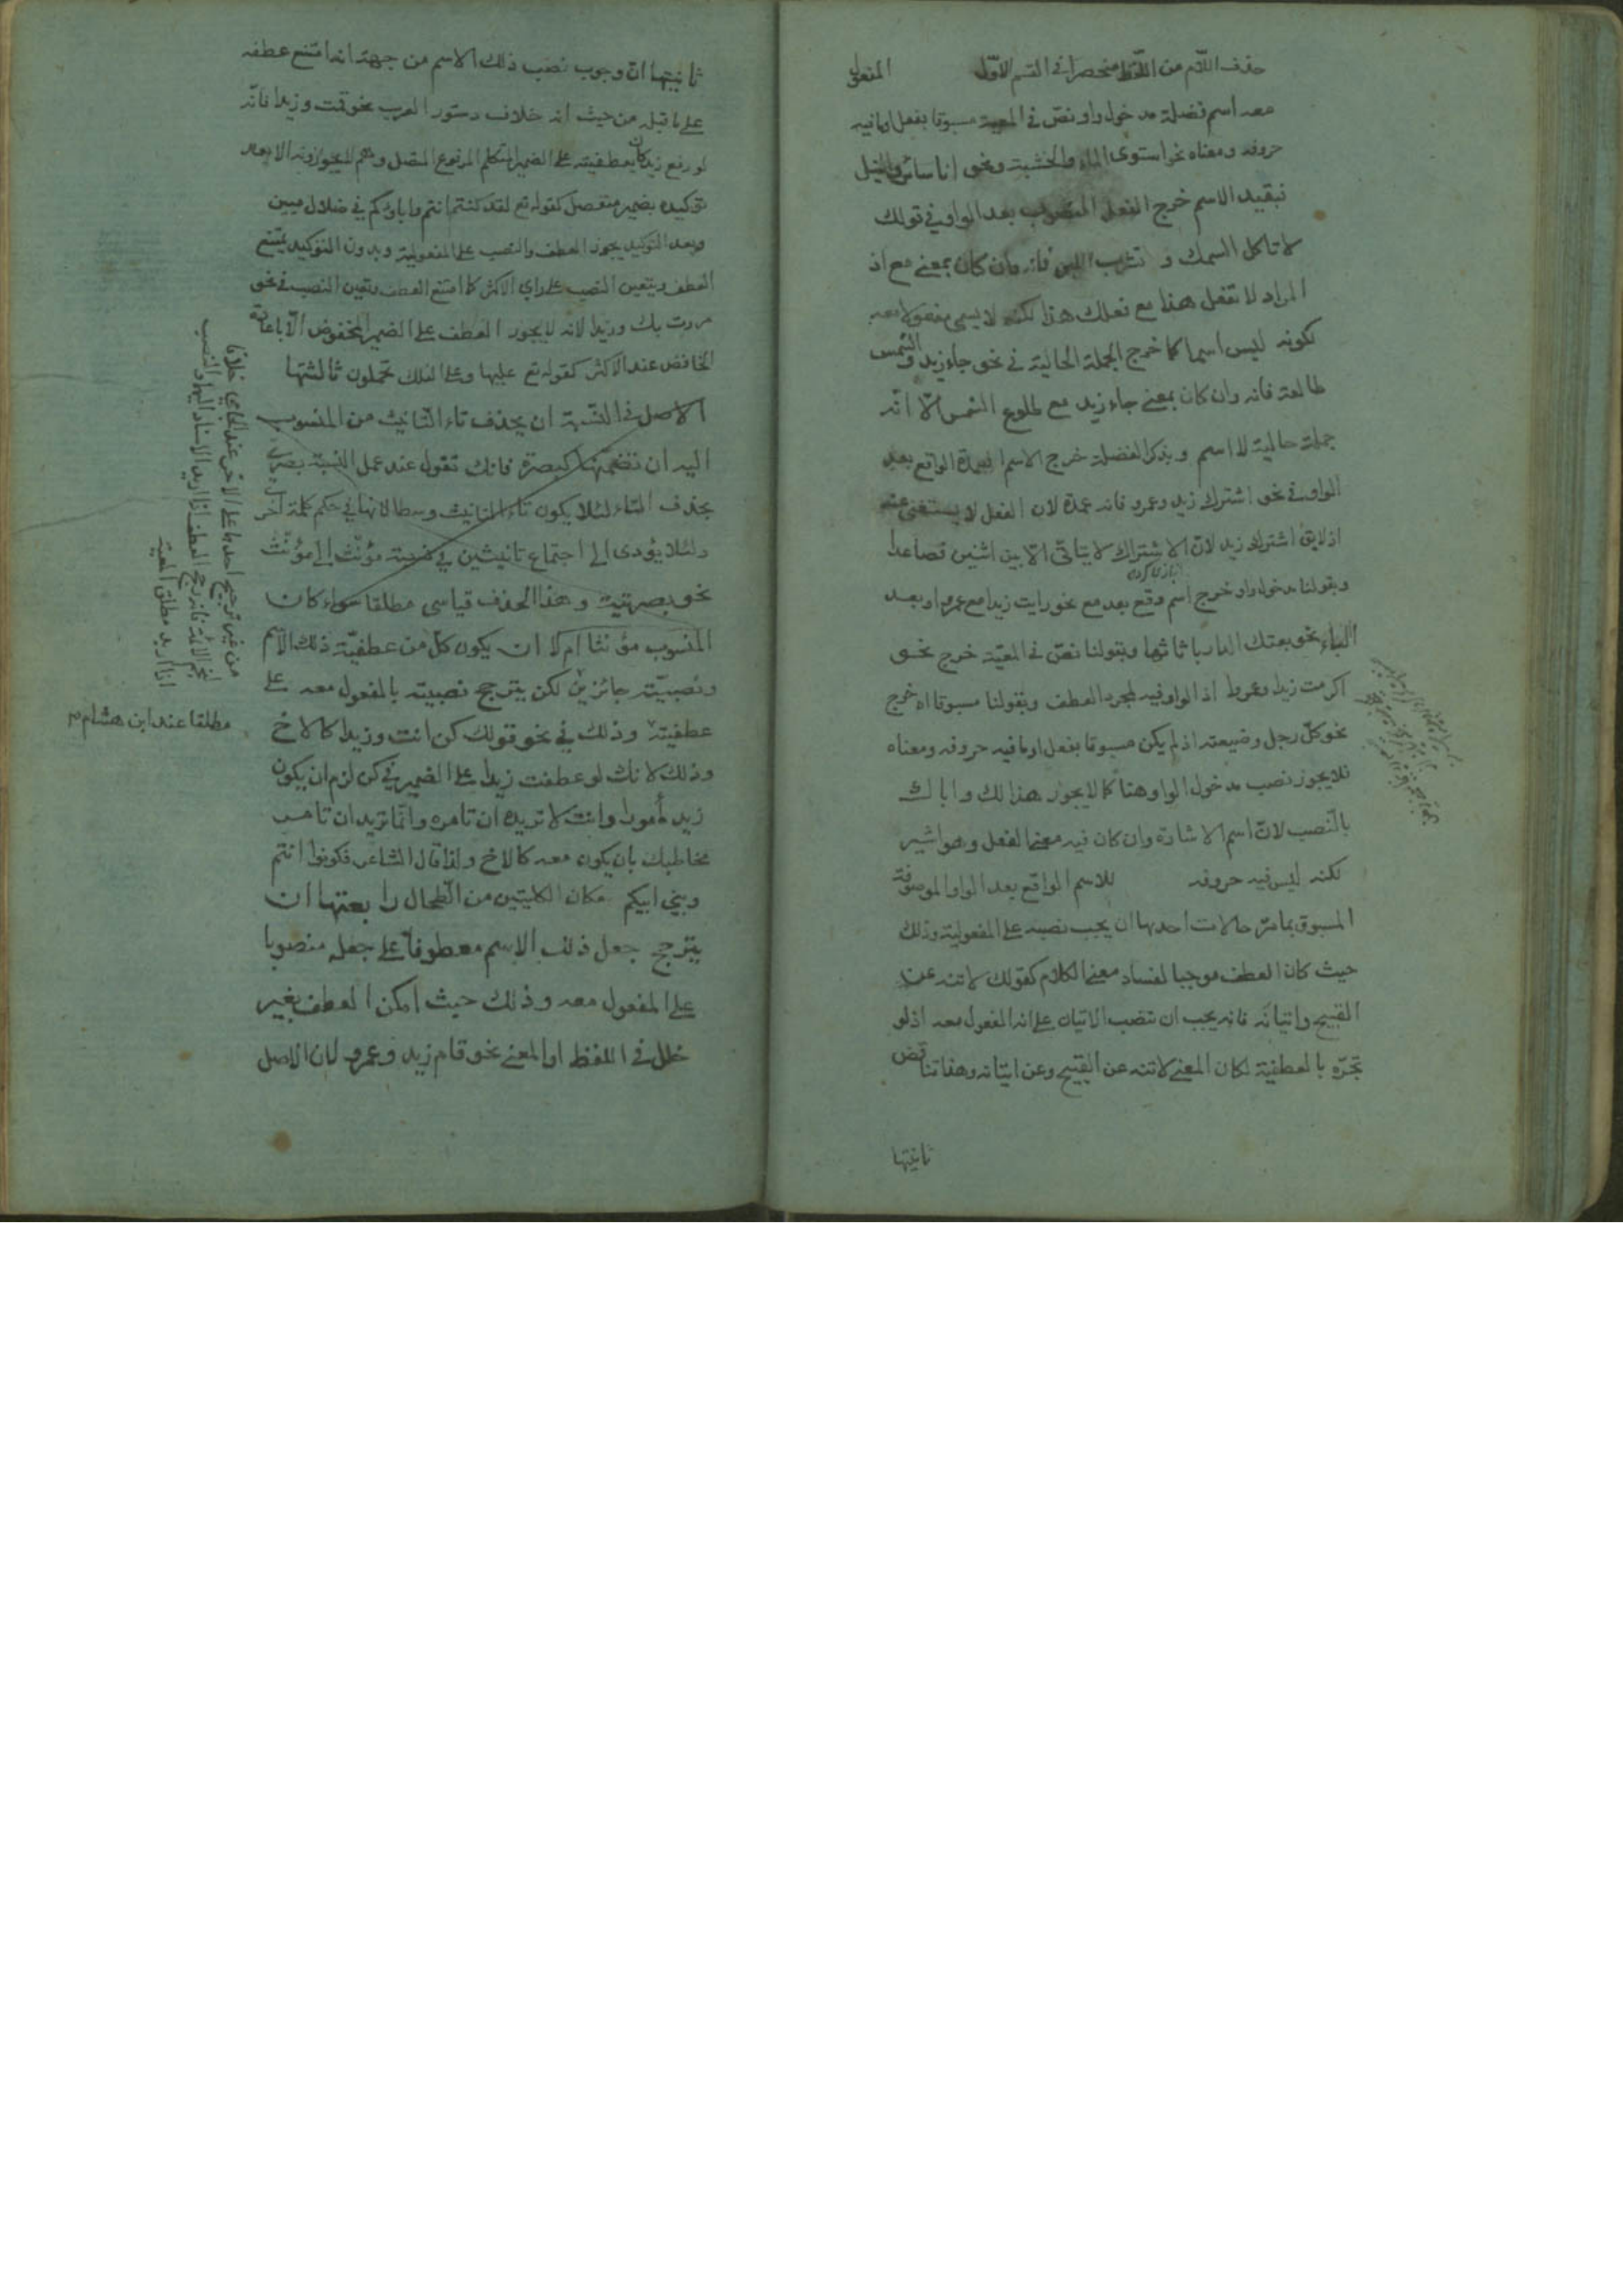 حذف اللام من اللفظ منحصرا في القسم الاوّل المفعول
معه اسم فضلة مدخول واو نصّ في المعية مسبوقا بفعل او ما فيه
حروفه ومعناه نحو استوى الماء والخشبة ونحو انا سائر والنيل
فبقيد الاسم خرج الفعل المنصوب بعد الواو في قولك
لا تاكل السمك و تشرب اللبن فانه وان كان بمعنى مع اذ
المراد لا تفعل هذا مع فعلك هذا لكنه لا يسمى مفعولا معه
لكونه ليس اسما كما خرج الجملة الحالية في نحو جاء زيد و الشمس
طالعة فانه وان كان بمعنى جاء زيد مع طلوع الشمس الّا انّه
جملة حالية لا اسم وبذكر الفضلة خرج الاسم العمدة الواقع بعد
الواو في نحو اشترك زيد وعمرو فانه عمدة لان الفعل لا يستغنى عنه
اذ لا يق اشترك زيد لانّ الاشتراك لا يتاتّى الّا بين اثنين فصاعدا
وبقولنا مدخول واو خرج اسم وقع بعد مع نحو رايت زيدا مع عمرو او بعد
الباء نحو بعتك الدار باثاثها وبقولنا نصّ في المعيّة خرج نحو
اكرمت زيدا وعمروا اذ الواو فيه لمجرد العطف وبقولنا مسبوقا اه خرج
نحو كلّ رجل وضيعته اذ لم يكن مسبوقا بفعل او ما فيه حروفه ومعناه
فلا يجوز نصب مدخول الواو هنا كما لا يجوز هذا لك واباك
بالنّصب لانّ اسم الاشارة وان كان فيه معنى الفعل وهو اشير
لكنه ليس فيه حروفه للاسم الواقع بعد الواو الموصوفة
المسبوق بما مرّ حالات احديها ان يجب نصبه على المفعولية وذلك
حيث كان العطف موجبا لفساد معنى الكلام كقولك لا تنه عن
القبيح واتيانَه فانه يجب ان تنصب الاتيان على انه المفعول معه اذ لو
تجرّه بالعطفية لكان المعنى لا تنه عن القبيح وعن اتيانه وهذا تناقض
ثانيتها
ثانيتها انّ وجوب نصب ذلك الاسم من جهة انه امتنع عطفه
على ما قبله من حيث انه خلاف دستور العرب نحو قمت وزيدا فانّه
لو رفع زيد كان بعطفيته على الضمير المتكلم المرفوع المتصل وهم لا يجوزونه الا بعد
توكيده بضمير منفصل كقوله تع لقد كنتم انتم واباؤكم في ضلال مبين
وبعد التوكيد يجوز العطف والنصب على المفعولية وبدون التوكيد يمتنع
العطف ويتعين النصب على راي الاكثر كما امتنع العطف وتعين النصب في نحو
مررت بك وزيدا لانه لا يجوز العطف على الضمير المخفوض الّا باعادة
الخافض عند الاكثر كقوله تع عليها وعلى الفلك تحملون ثالثتها
الاصل في النّسبة ان يحذف تاء التّانيث من المنسوب
اليه ان تضمّنها كبصرة فانك تقول عند عمل النسبة بصرى
بحذف التاء لئلا يكون تاء التانيث وسطا لانها في حكم كلمة اخرى
ولئلا يؤدى الى اجتماع تانيثين في نسبة مؤنّث الى مؤنّث
نحو بصرتية وهذا الحذف قياسى مطلقا سواء كان
المنسوب مؤنثا ام لا ان يكون كلّ من عطفيّة ذلك الاسم
ونصبيّته جائزين لكن يترجح نصبيته بالمفعول معه على
عطفيته وذلك في نحو قولك كن انت وزيدا كالاخ
وذلك لانك لو عطفت زيدا على الضمير في كن لزم ان يكون
زيد مأمورا وانت لا تريد ان تامره وانّما تريد ان تامر
مخاطبك بان يكون معه كالاخ ولذا قال الشاعر فكونوا انتم
وبني ابيكم مكان الكليتين من الطحال رابعتها ان
يترجح جعل ذلك الاسم معطوفا على جعله منصوبا
على المفعول معه وذلك حيث امكن العطف بغير
خلل في اللفظ او المعنى نحو قام زيد وعمرو لان الاصل
من غير ترجيح احدهما على الاخر عند الجامي خلافا
اذا اريد مطلق المعية
مطلقا عند ابن هشام